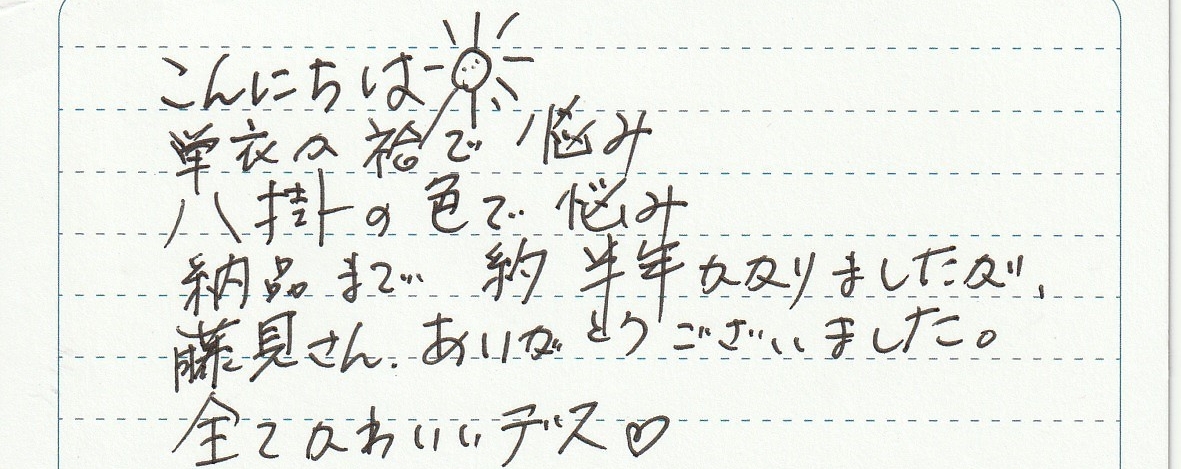 こんにちは
単衣か袷で悩み
八掛の色で悩み
納品まで 約半年かかりましたが、
藤見さん、ありがとうございました。
全てかわいいデス♡